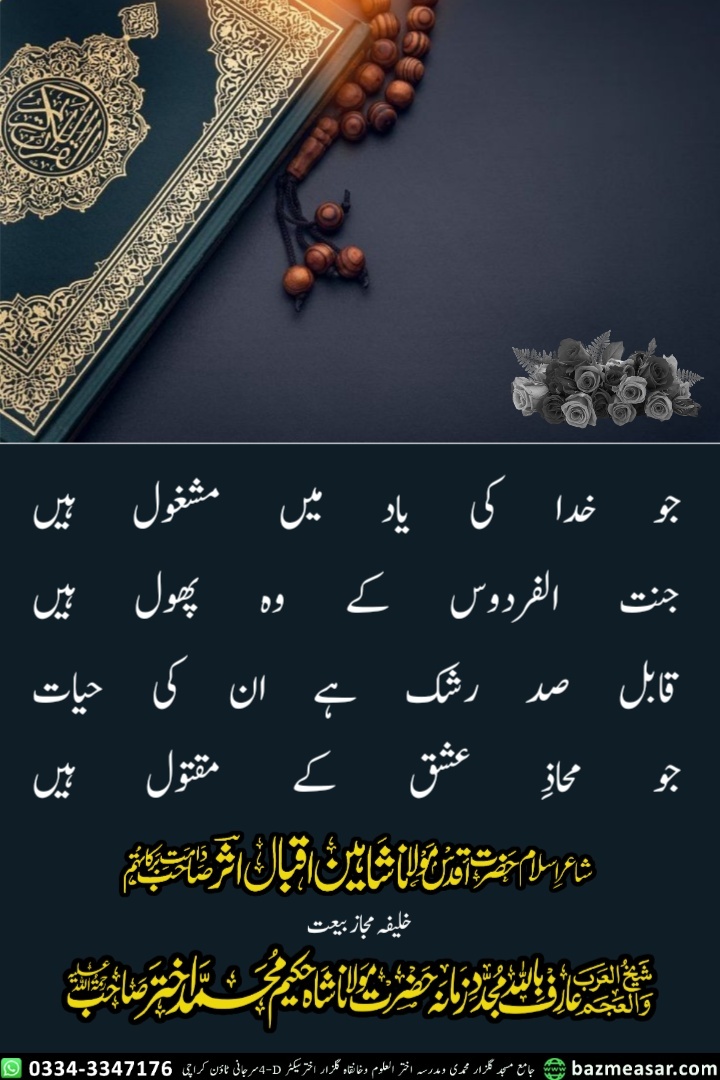 القرآن الكريم
جو خدا کی یاد میں مشغول ہیں
جنت الفردوس کے وہ پھول ہیں
قابل صد رشک ہے ان کی حیات
جو محاذِ عشق کے مقتول ہیں
شاعرِ اسلام حضرت اقدس مولانا شاہین اقبال اثر صاحب دامت برکاتہم
خلیفہ مجاز بیعت
شیخ العرب والعجم عارف باللہ مجدد زمانہ حضرت مولانا شاہ حکیم محمد اختر صاحب رحمۃ اللہ علیہ
0334-3347176 جامع مسجد گلزار محمدی و مدرسہ اختر العلوم و خانقاہ گلزار اختر سیکٹر 4-D سرجانی ٹاؤن کراچی bazmeasar.com